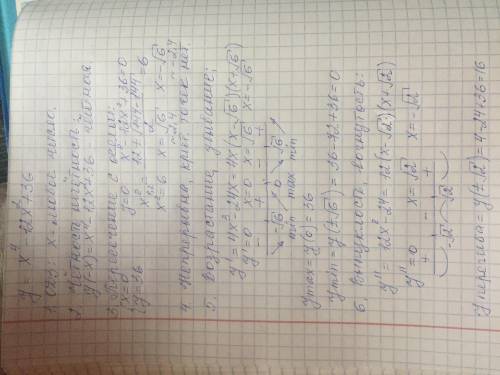 y = x⁴ - 12x² + 36
1. ОДЗ: x - любое число.
2. Чётность, нечётность
y(-x) = x⁴ - 12x² + 36 - чётная
3. Пересечение с осями:
{x = 0 y = 0 x⁴ - 12x² + 36 = 0
{y = 36 x² = 12 ± √144-144 / 2 = 6
x² = 6 x = √6 x = -√6
≈ 2,4 ≈ -2,4
4. Непрерывна, крит. точек нет
5. Возрастание, убывание:
y' = 4x³ - 24x = 4x(x-√6)(x+√6)
y' = 0 x = 0 x = √6 x = -√6
- + - +
-√6 x 0 √6
min max min
ymax = y(0) = 36
ymin = y(±√6) = 36-72+36 = 0
6. Выпуклость, вогнутость:
y'' = 12x² - 24 = 12(x-√2)(x+√2)
y'' = 0 x = √2 x = -√2
+ - +
-√2 √2
y перегиба = y(±√2) = 4-24+36 = 16